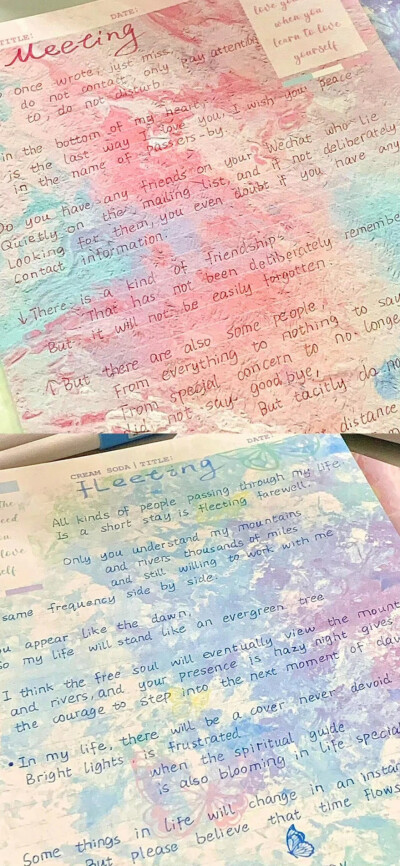 TITLE:
DATE:
Meeting
love you
when you
learn to love
yourself
once wrote, just miss,
do not contact, only pay attention
to, do not disturb
in the bottom of my heart,
is the last way I love you, I wish you peace
in the name of passers-by.
Do you have any friends on your Wechat who lie
Quietly on the mailing list, and if not deliberately
Looking for them, you even doubt if you have any
contact information.
↓ There is a kind of friendships
That has not been deliberately remembe
But it will not be easily forgotten.
↑ But there are also some people,
From everything to nothing to say
From special concern to no longe
did not say good bye,
But tacitly do no
distance
CREAM SODA | TITLE:
DATE:
fleeting
All kinds of people passing through my life
Is a short stay is fleeting farewell.
Only you understand my mountains
and rivers thousands of miles
and still willing to work with me
same frequency side by side.
ou appear like the dawn,
so my life will stand like an evergreen tree
I think the free soul will eventually view the mount
and rivers, and your presence is hazy night gives
the courage to step into the next moment of daw
• In my life, there will be a cover never devoid
Bright lights is frustrated
when the spiritual guide
is also blooming in life special
Some things in life will change in an instan
But please believe that time flows